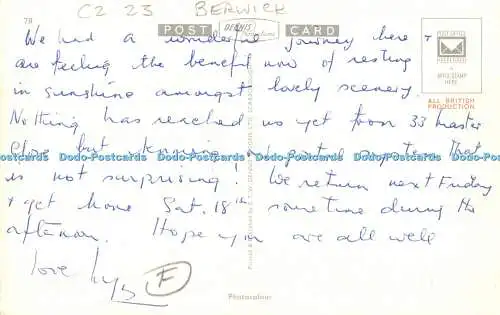 78
C2 23 BERWICK
POST CARD
DENNIS
POST OFFICE
PREFERRED
AFFIX STAMP
HERE
ALL BRITISH
PRODUCTION
We had a wonderful journey here &
are feeling the benefit now of resting
in sunshine amongst lovely scenery.
Nothing has reached us yet from 33
Close but knowing our postal system that
Dodo-Postcards Dodo-Postcards Dodo-Postcards Dodo-Postcards Dodo-Postcards Dodo-Postcards
is not surprising! We return next Friday
& get home Sat. 18th sometime during the
afternoon. Hope you are all well
love
F
Photocolour